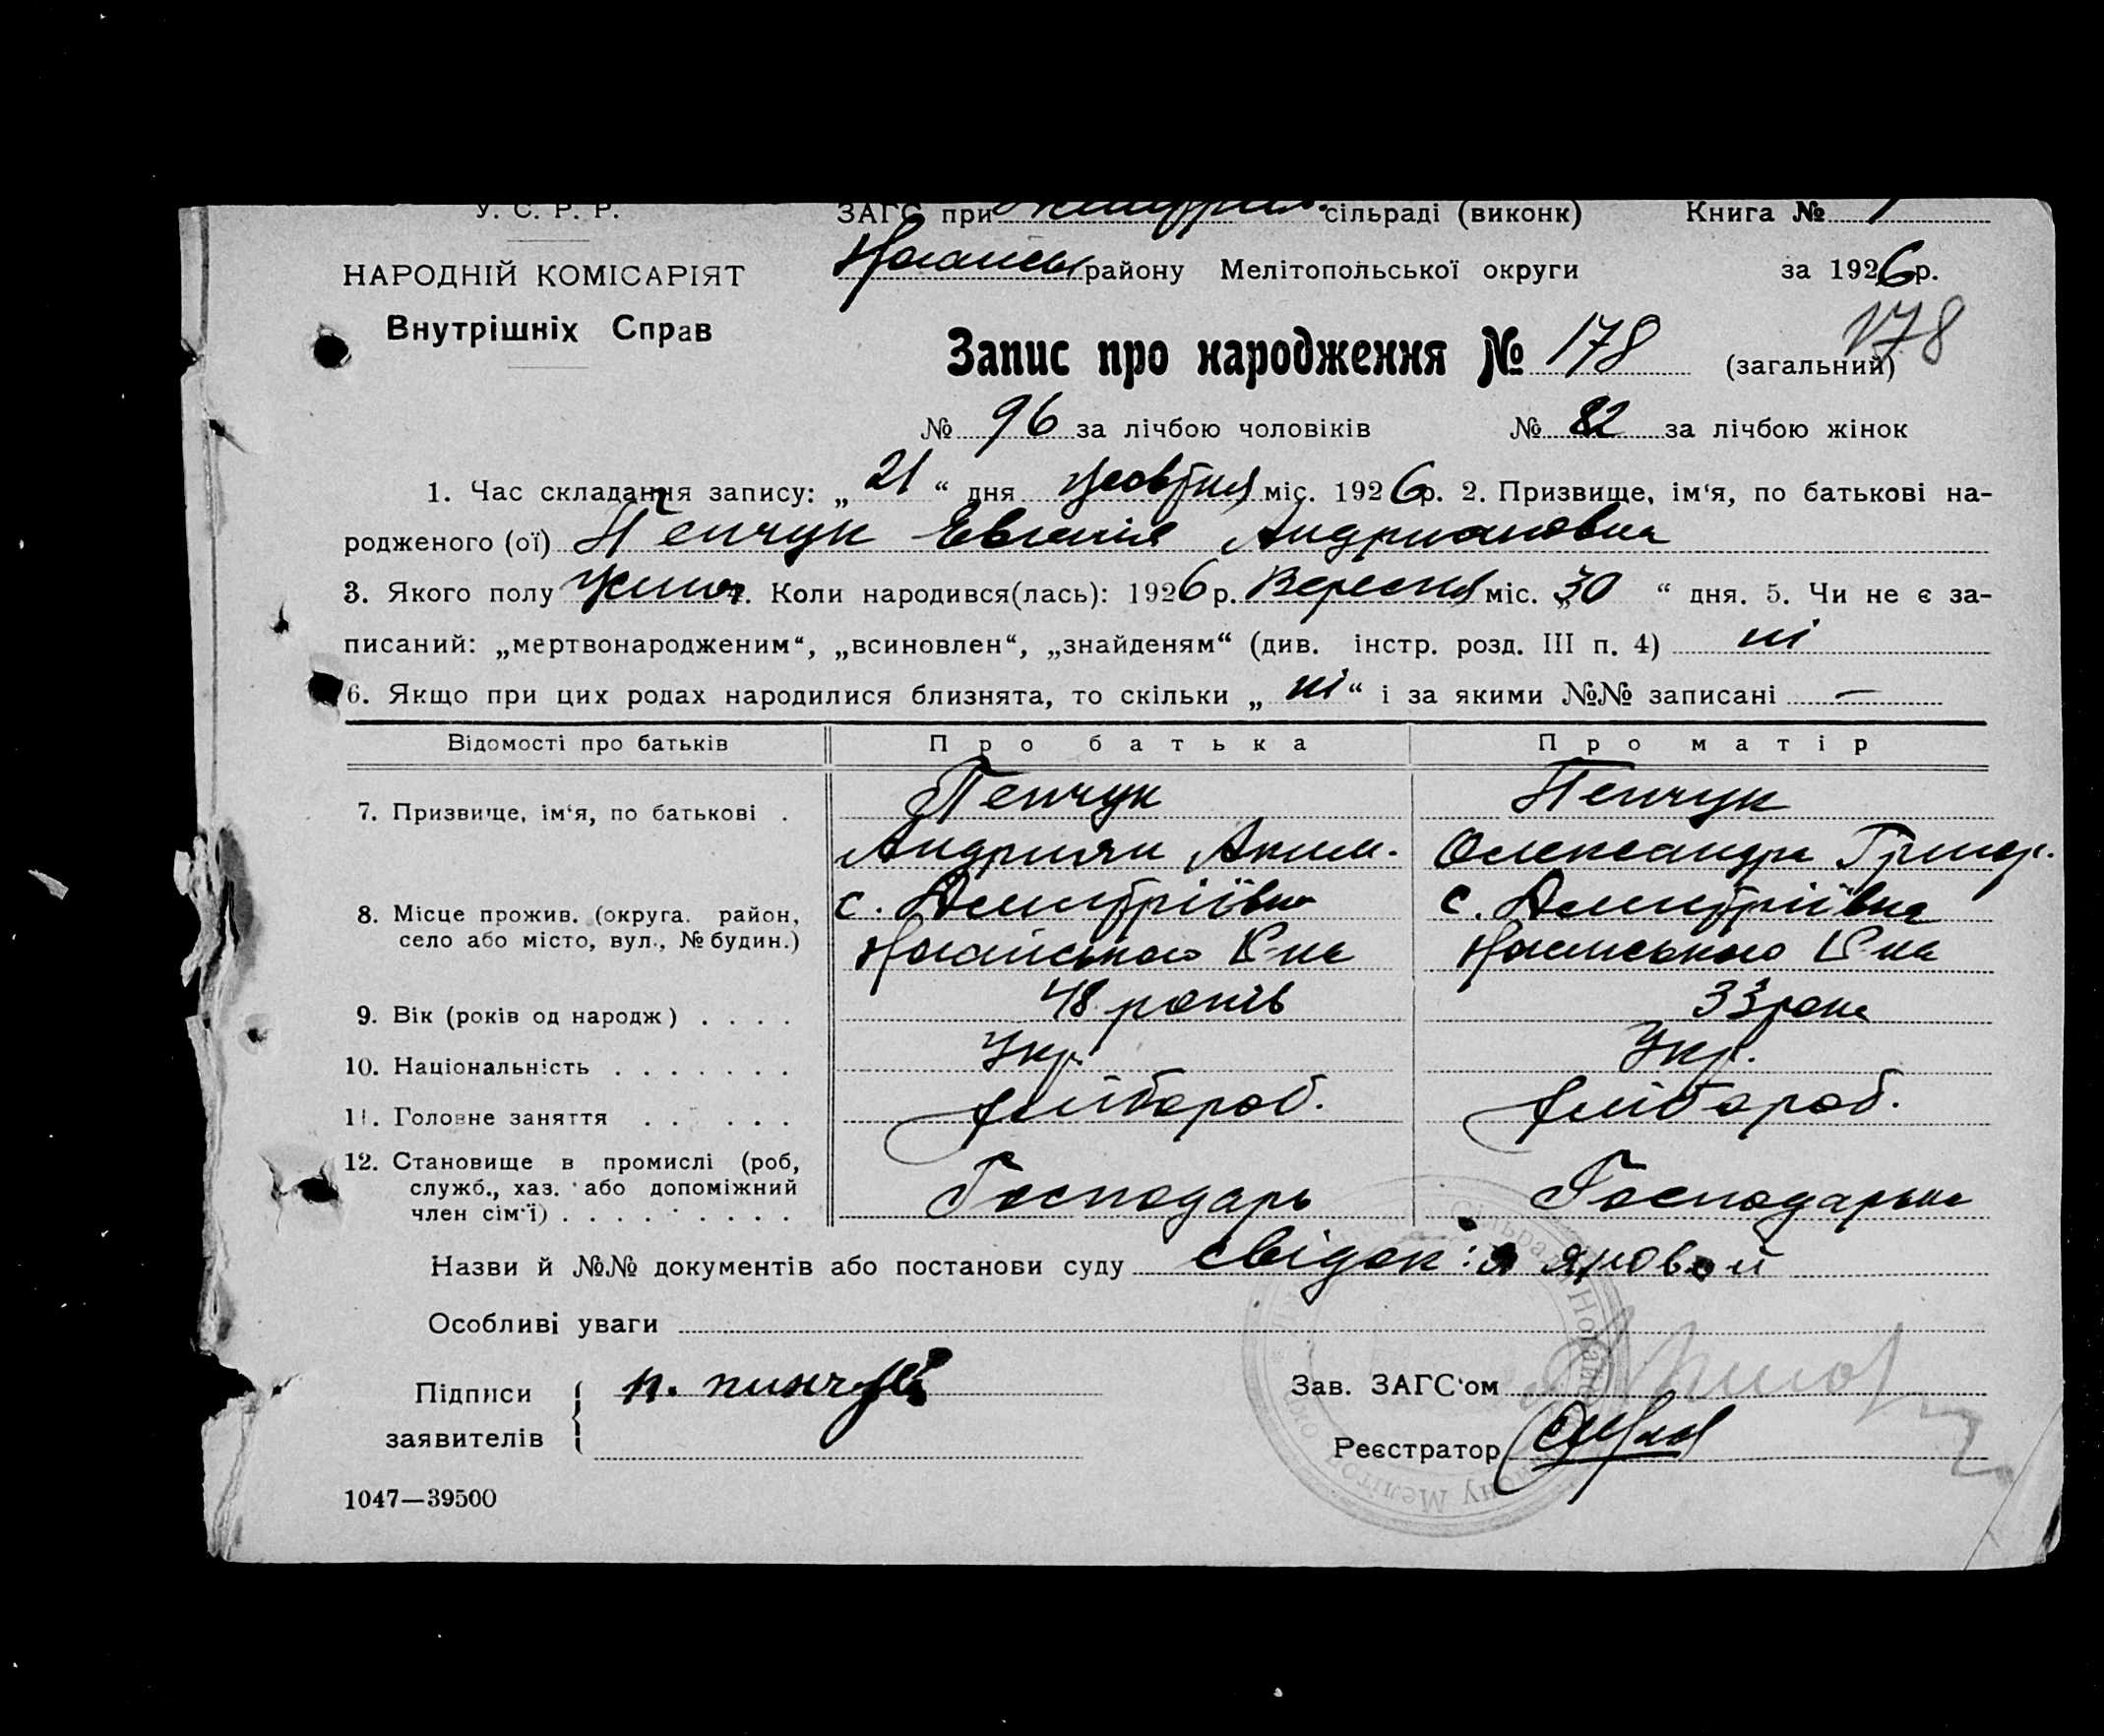 У. С. Р. Р. ЗАГС при сільраді (виконк) Книга №
НАРОДНІЙ КОМІСАРІЯТ
Внутрішніх Справ
району Мелітопольської округи за 1926 р.
Запис про народження № 178 (загальний) 178
№ 96 за лічбою чоловіків № 82 за лічбою жінок
1. Час складання запису: „ 21 “ дня жовтня міс. 1926 р. 2. Призвище, ім‘я, по батькові на-
родженого (ої) Пепчук Евгенія Андриановна
3. Якого полу жіноч. 4. Коли народився(лась): 1926 р. Вересня міс. „30 “ дня. 5. Чи не є за-
писаний: „мертвонародженим“, „всиновлен“, „знайденям“ (див. інстр. розд. III п. 4) ні
6. Якщо при цих родах народилися близнята, то скільки „ ні “ і за якими №№ записані —
Відомості про батьків Про батька Про матір
7. Призвище, ім‘я, по батькові . Пепчук Пепчук
Андриян Аким. Олександра Григор.
8. Місце прожив. (округа. район, с. Дмитріївка с. Дмитріївка
село або місто, вул., № будин.) Ногайського Р-на Ногайського Р-на
9. Вік (років од народж) . . . . 48 років 33 роки
10. Національність . . . . . . . Укр. Укр.
11. Головне заняття . . . . . хлібороб. хлібороб.
12. Становище в промислі (роб,
служб., хаз. або допоміжний
член сім‘ї) . . . . . . . . . Господарь Господарька
Назви й №№ документів або постанови суду свідок: Яновой
Особливі уваги
Підписи
заявителів
Зав. ЗАГС‘ом
Реєстратор
1047—39500